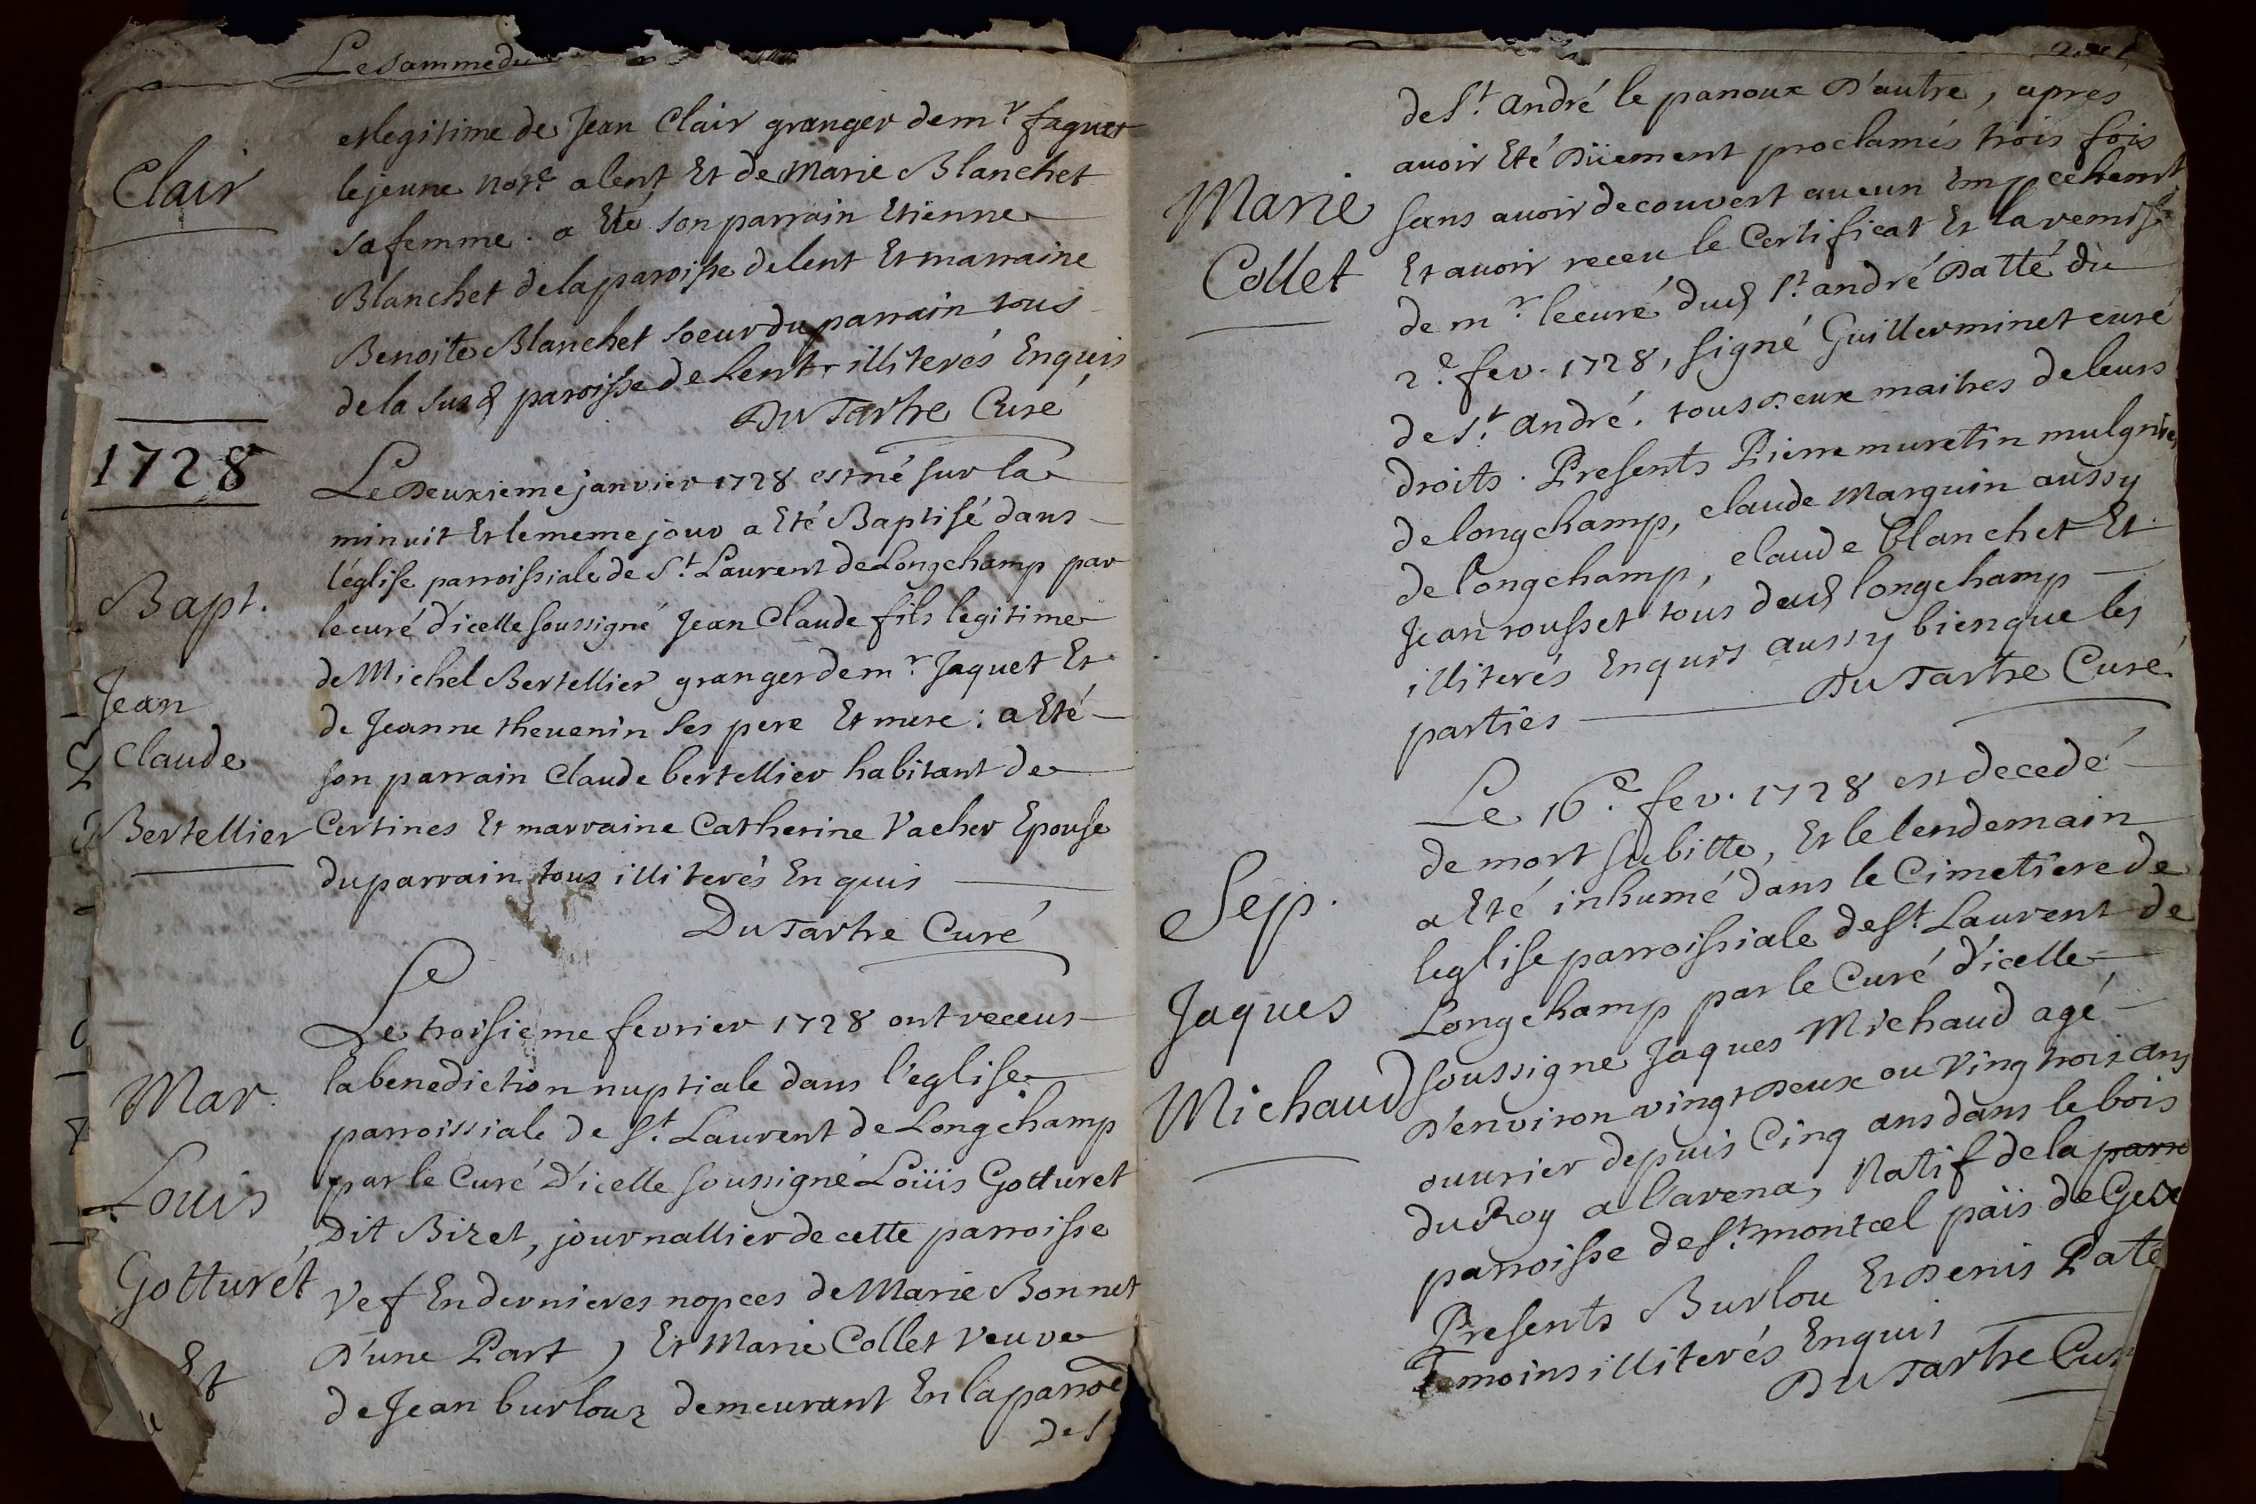 Le Samme du
Clair
et legitime de Jean Clair granger de mr. Jaquet
le jeune notre. a lent Et de Marie Blanchet
sa femme. a Eté son parrain Etienne
Blanchet de la paroisse de lent Et marraine
Benoite Blanchet soeur du parrain tous
de la susd paroisse de Lent illiterés Enquis
Du Tartre Curé
1728
Le Deuxieme janvier 1728 est né sur la
minuit Et le meme jour a Eté Baptisé dans
l'église parroissiale de St. Laurent de Longchamp par
Bapt.
le curé d'icelle soussigné Jean Claude fils legitime
de Michel Bertellier granger de mr. Jaquet Et
Jean
de Jeanne thevenin ses pere Et mere : a Eté
Claude
son parrain Claude bertellier habitant de
Bertellier
Certines Et marraine Catherine Vacher Epouse
du parrain tous illiterés Enquis
Du Tartre Curé
Le troisieme fevrier 1728 ont receus
la benediction nuptiale dans l'eglise
Mar.
parroissiale de St. Laurent de Longchamp
par le Curé D'icelle soussigné Loüis Gotturet
Louis
Dit Bizet, journallier de cette parroisse
Gotturet
Vef En dernieres nopces de Marie Bonnet
D'une Part, Et Marie Collet veuve
Et
de Jean burlouz demeurant En la parroe
de S
de St. André le panoux D'autre, apres
avoir Eté Düement proclamés trois fois
Marie
sans avoir decouvert aucun Empechemt
Collet
Et avoir receu le Certificat Et la remise
de mr. le curé dud St. andré Datté du
2e. fev. 1728, signé Guillerminet curé
de St. André. tous Deux maitres de leurs
droits. Presents Pierre muretin mulgnier
de longchamp, claude Marguin aussy
de longchamp, claude blanchet Et
Jean rousset tous dud longchamp
illiterés Enquis aussy bien que les
parties
Du Tartre Curé
Le 16e. fev. 1728 est decedé
de mort subitte, Et le lendemain
a Eté inhumé dans le Cimetiere de
Sep.
leglise parroissiale de St Laurent de
Longchamp par le Curé d'icelle
Jaques
soussigne Jaques Michaud agé
Michaud
D'environ vingt Deux ou Ving trois ans
ouvrier depuis Cinq ans dans le bois
du Roy a lavena, Natif de la parro
parroisse de St. montcel païs de Gex
Presents Burlou Et Denis Paté
Temoins illiterés Enquis
Du Tartre Curé